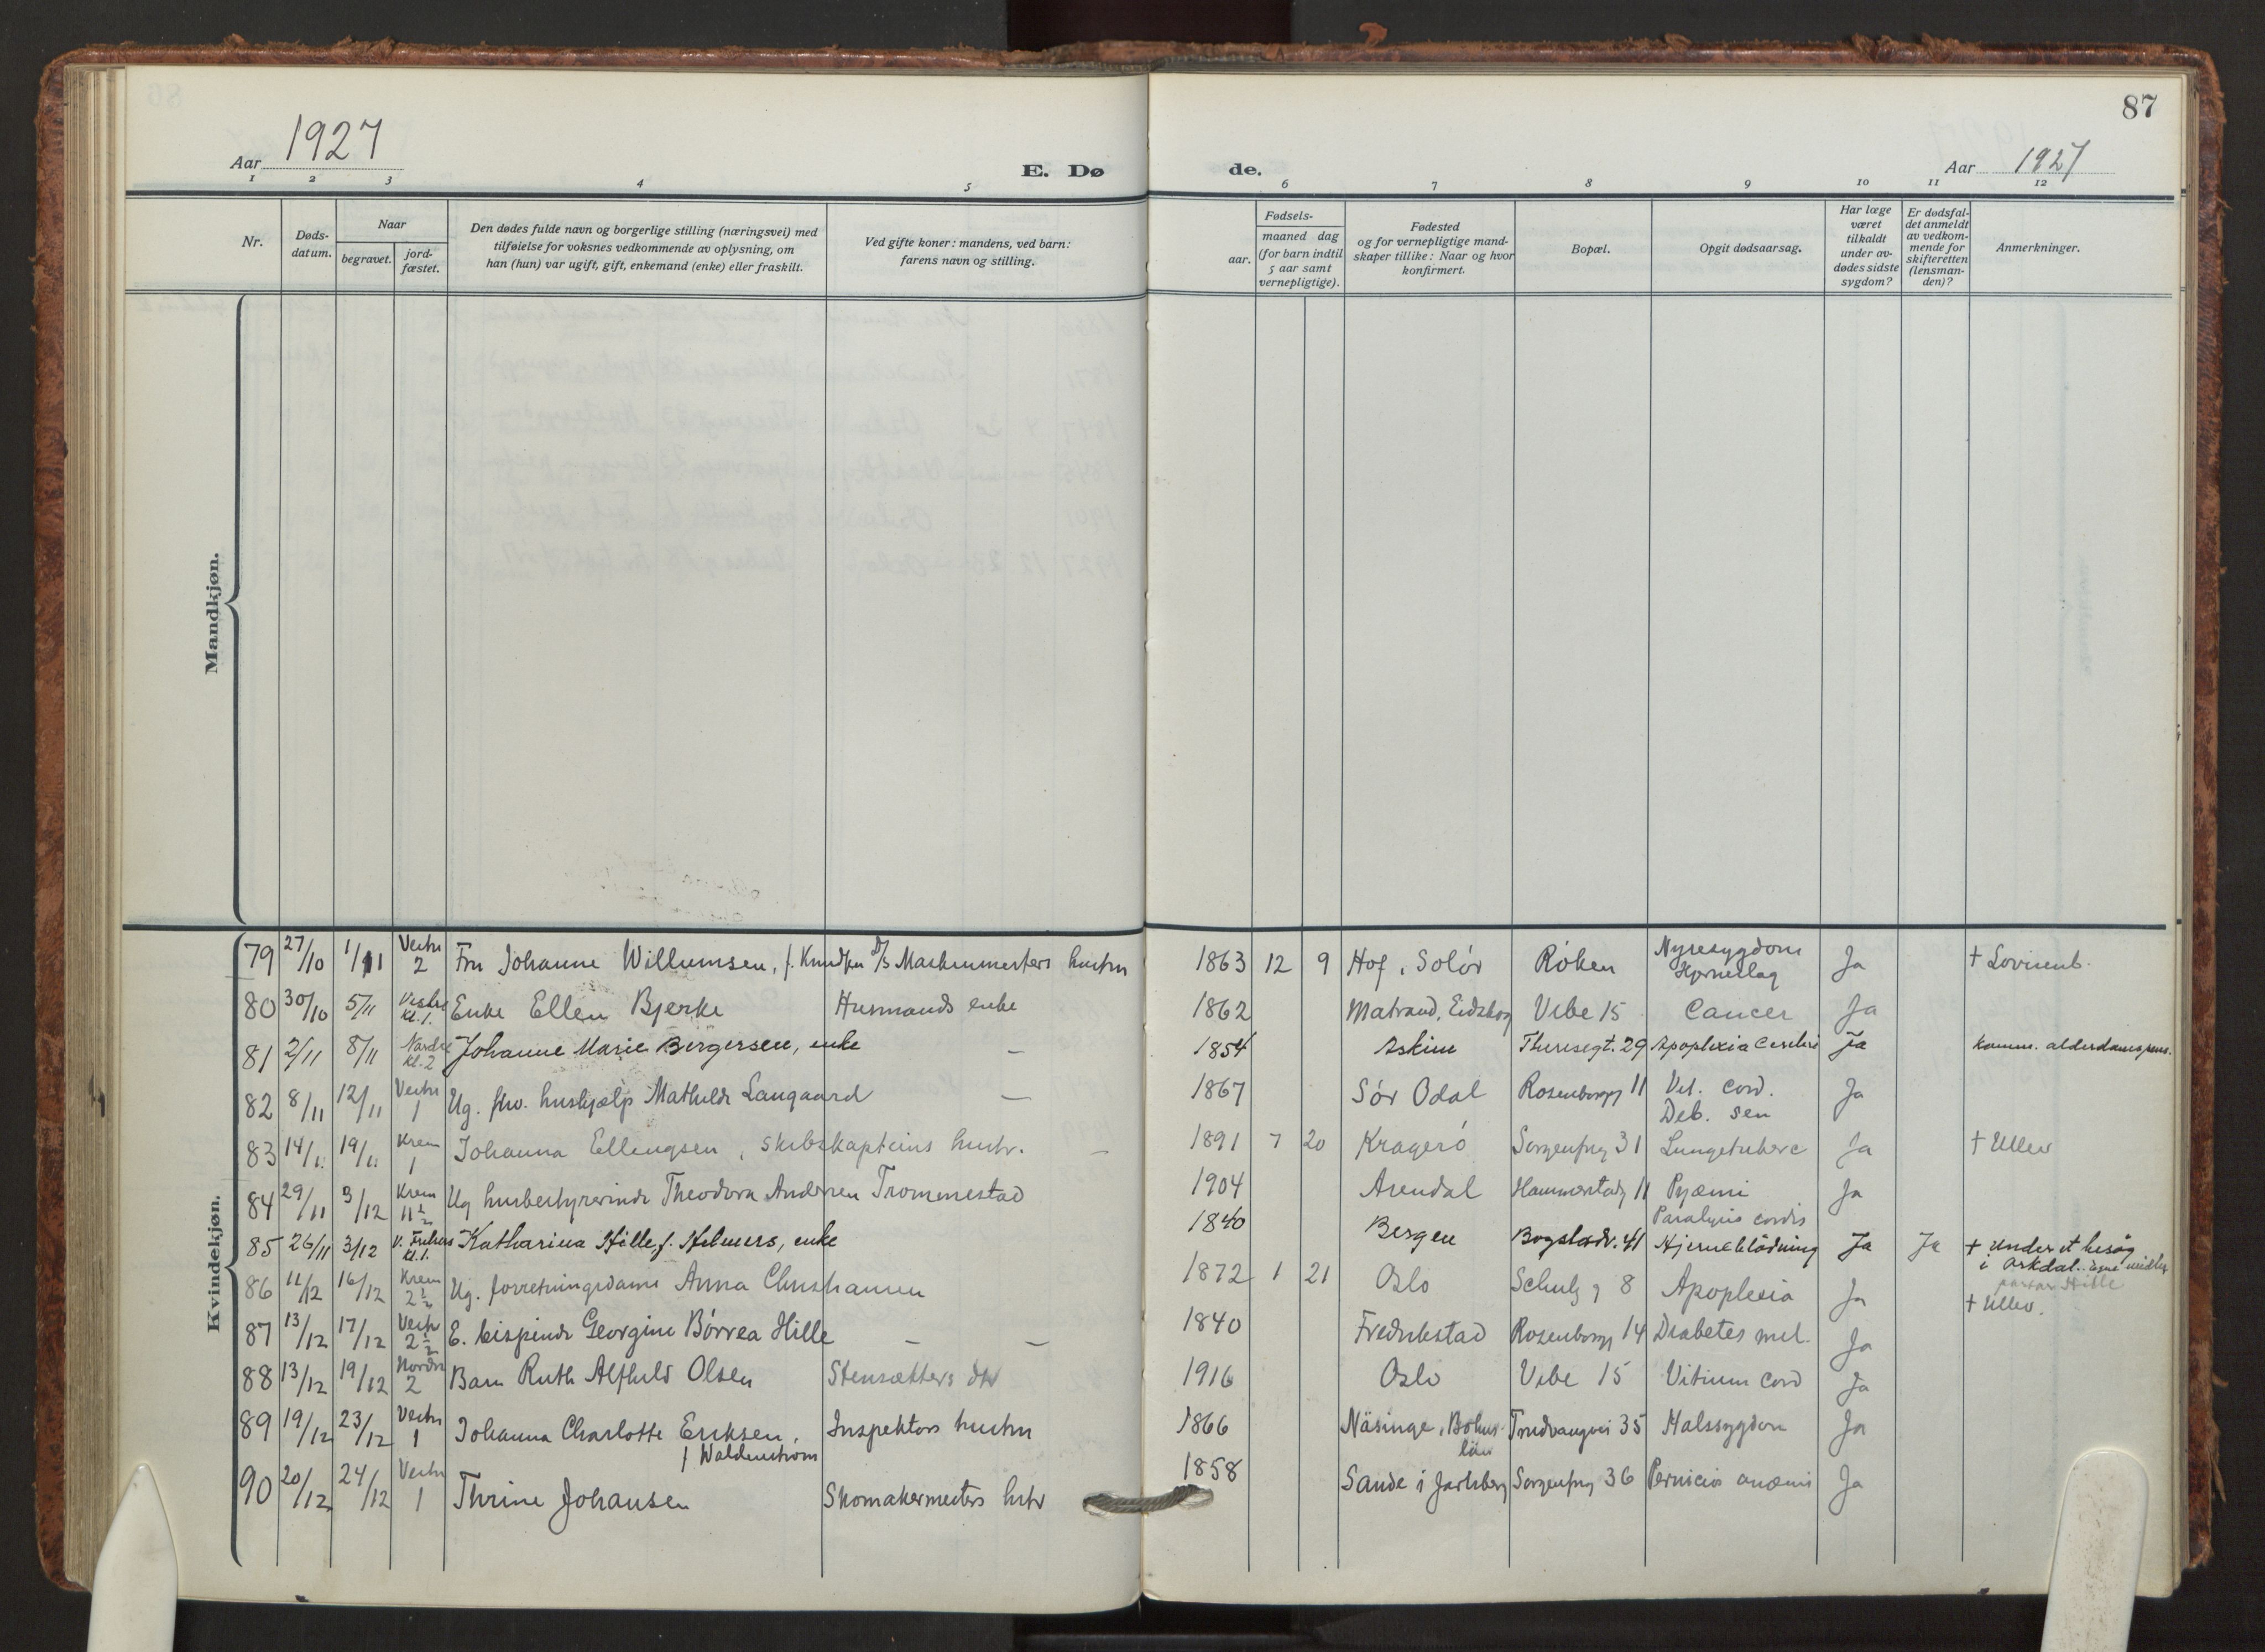 87
Aar 1927
E. Dø
de.
Aar 1927
1 2 3 4 5 6 7 8 9 10 11 12
Nr.
Døds-
datum.
Naar
begravet.
jord-
fæstet.
Den dødes fulde navn og borgerlige stilling (næringsvei) med
tilføielse for voksnes vedkommende av oplysning, om
han (hun) var ugift, gift, enkemand (enke) eller fraskilt.
Ved gifte koner: mandens, ved barn:
farens navn og stilling.
Fødsels-
aar.
maaned dag
(for barn indtil
5 aar samt
vernepligtige).
Fødested
og for vernepligtige mand-
skaper tillike: Naar og hvor
konfirmert.
Bopæl.
Opgit dødsaarsag.
Har læge
været
tilkaldt
under av-
dødes sidste
sygdom?
Er dødsfal-
det anmeldt
av vedkom-
mende for
skifteretten
(lensman-
den)?
Anmerkninger.
Mandkjøn.
Kvindekjøn.
79 27/10 1/11 Vestre 2 Fru Johanne Willumsen, f. Knudsen Maskinmesters hustru 1863 12 9 Hof, Solør Røken Nyresygdom Hjerneslag Ja † Lovisenb.
80 30/10 5/11 Vestre Kl. 1. Enke Ellen Bjerke Husmands enke 1862 Matrand, Eidskog Vibe 15 Cancer Ja
81 2/11 8/11 Nordre Kl. 2 Johanne Marie Birgersen, enke — 1854 Askim Theresegt. 29 Apoplexia Cerebri Ja Komm. alderdomspens.
82 8/11 12/11 Vestre 1 Ug. fhv. hushjælp Mathilde Langaard — 1867 Sør Odal Rosenborgg 11 Vit. cord. Deb. sen Ja
83 14/11 19/11 Krem 1 Johanna Ellingsen, skibskapteins hustr. — 1891 7 20 Kragerø Sorgenfrig 31 Lungetuberc Ja † Ullev
84 29/11 3/12 Krem Ug husbestyrerinde Theodora Andersen Tromnestad 1904 Arendal Hammerstadg 11 Pyæmi Paralysis cordis Ja
85 26/11 3/12 V. Frelsers kl. 1. Katharina Hille, f. Hilmers, enke 1840 Bergen Bogstadv. 41 Hjerneblødning Ja Ja † Under et besøg
i Orkdal.
86 11/12 16/12 Krem 2 Ug. forretningsdame Anna Christiansen 1872 1 21 Oslo Schultz g 8 Apoplexia Ja † Ullev.
87 13/12 17/12 Vestr 2 E. bispinde Georgine Børrea Hille — — 1840 Fredrikstad Rosenborgg 14 Diabetes mel. Ja
88 13/12 19/12 Nordre 2 Barn Ruth Alfhild Olsen Stensætters dtr 1916 Oslo Vibe 15 Vitium cord Ja
89 19/12 23/12 Vestre 1 Johanna Charlotte Eriksen, f Waldenstrøm Inspektørs hustru 1866 Näsinge, Bohus-
län Trudvangvei 35 Halssygdom Ja
90 20/12 24/12 Vestre 1 Thrine Johansen Skomakermesters hstr 1858 Sande i Jarlsberg Sorgenfrig 36 Perniciøs anæmi Ja